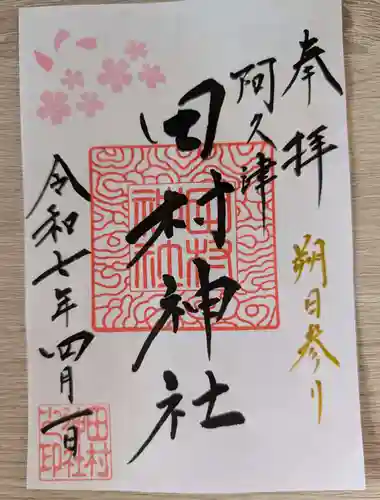 奉拝
朔日参り
阿久津
田村神社
令和七年四月一日
田村
神社
田村
神社
之印